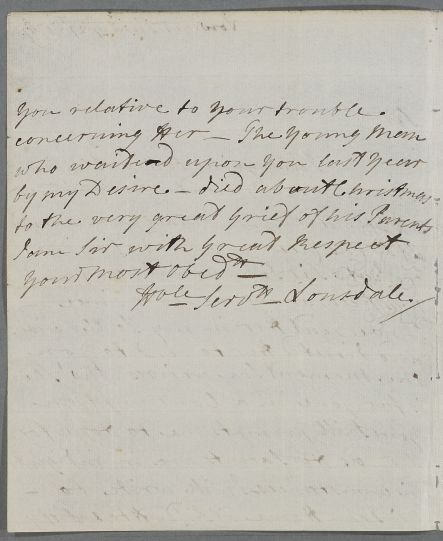 you relative to your trouble.
concerning Her – The young Man
who waited upon you last year
by my Desire – died about Christmas
to the very great grief of his Parents
I am Sir with great Respect
your most obedt
Hble Servt Lonsdale.